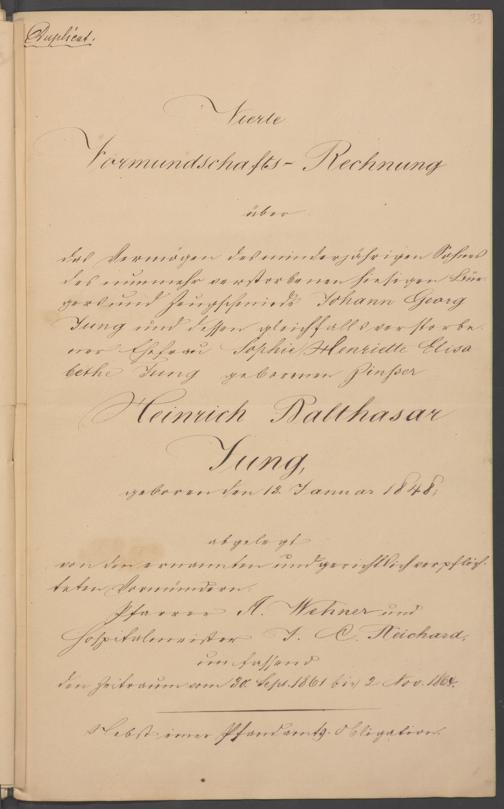 Duplicat.
33
Vierte
Vormundschafts-Rechnung
über
das Vermögen des minderjährigen Sohnes
des nunmehr verstorbenen hiesigen Bür-
gers und Zeugschmieds Johann Georg
Jung und dessen gleichfalls verstorbe
ner Ehefrau Sophie Henriette Elisa
bethe Jung geborenen Zinßer
Heinrich Balthasar
Jung,
geboren den 12. Januar 1848,
abgelegt
von den ernannten und gerichtlich verpflich-
teten Vormündern
Pfarrer A. Wehner und
Hospitalmeister J. C. Reichard,
umfassend
den Zeitraum vom 20. Sept. 1861 bis 2. Nov. 1864.
Nebst einer Pfandamts-Obligation.